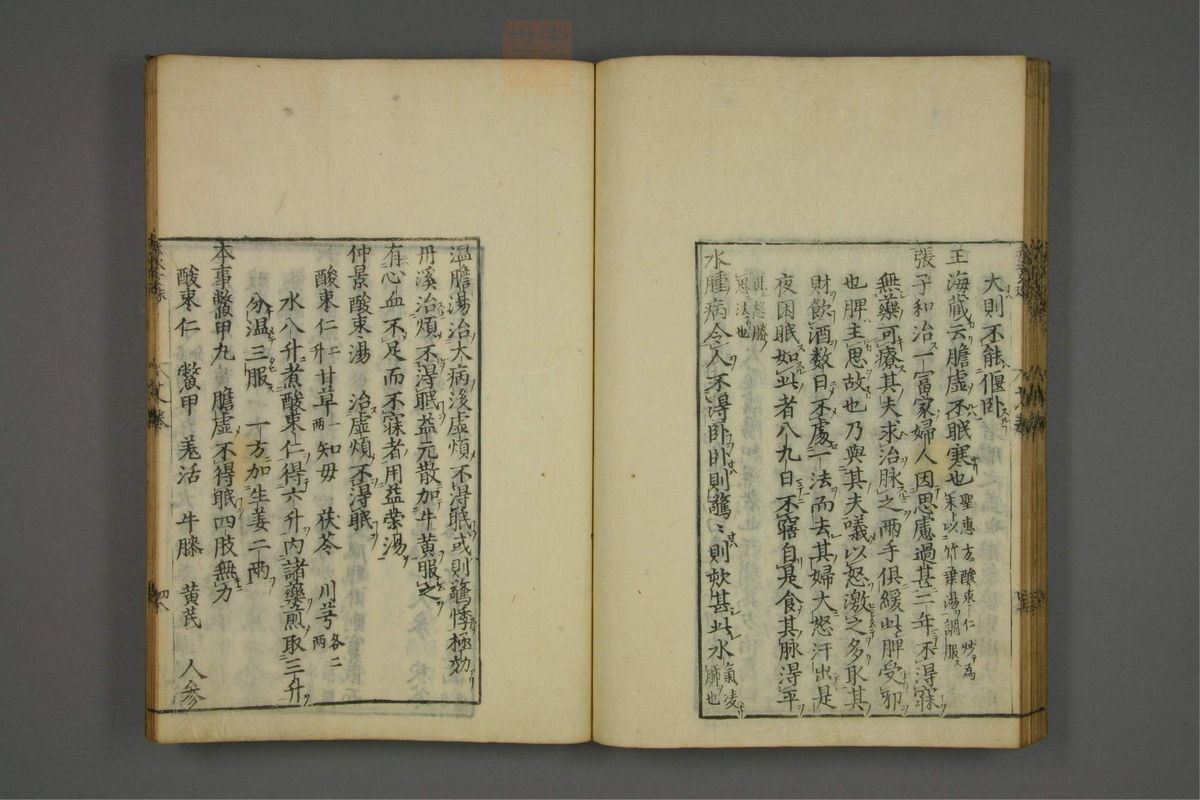 大則不能偃卧
王海藏云膽虛不眠寒也聖惠方酸棗仁炒為
末以竹葉湯調服
張子和治一冨家婦人因思慮過甚二年不得寐
無藥可療其夫求治脉之兩手俱緩此脾受邪
也脾主思故也乃與其夫議以怒激之多取其
財飲酒数日不處一法而去其婦大怒汗出是
夜困眠如此者八九日不寤自是食其脉得平
此怒勝
思法也
水腫病令人不得卧卧則驚〻則欬甚此水氣凌
肺也
温膽湯治大病後虛煩不得眠或則驚悸極効
丹溪治煩不得眠益元散加牛黄服之
有心血不足而不寐者用益榮湯
仲景酸棗湯 治虛煩不得眠
酸棗仁二升 甘草一兩 知毋 茯苓 川芎各二兩
水八升煮酸棗仁得六升内諸藥煎取三升
分温三服 一方加生姜二兩
本事鱉甲丸 膽虛不得眠四肢無力
酸棗仁 鱉甲 羌活 牛膝 黄芪 人參